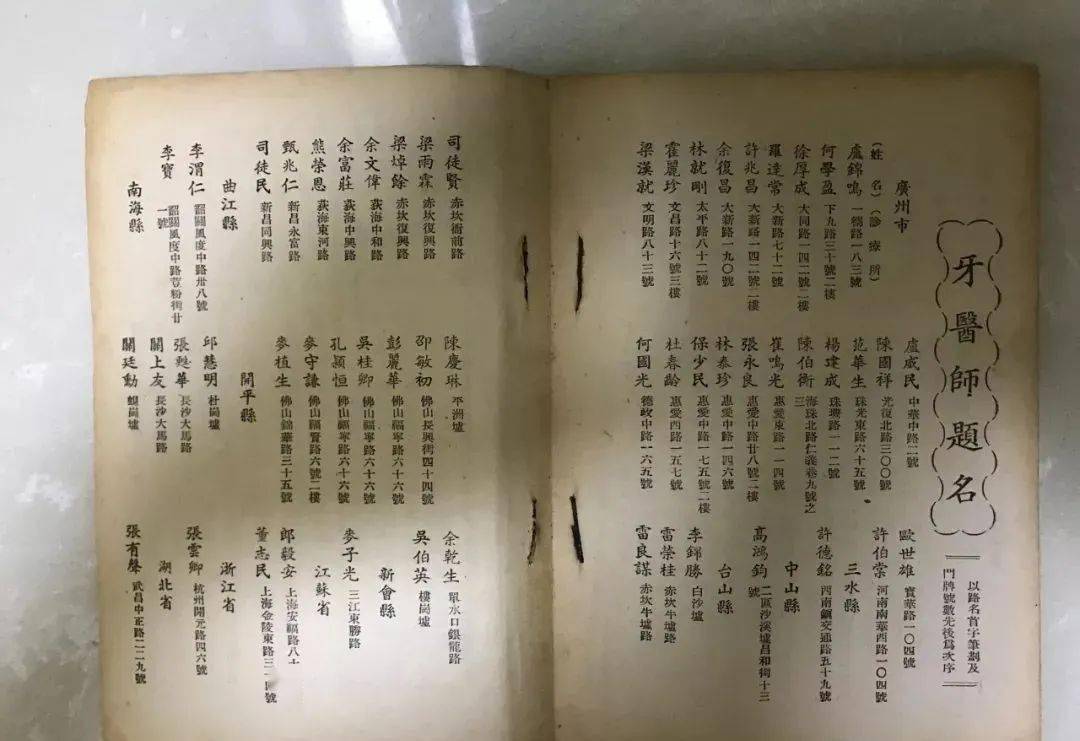 牙醫師題名
以路名首字筆劃及
門牌號數先後爲次序
廣州市
(姓名)(診療所)
盧錦鳴 一德路一八三號
何學盈 下九路三十號二樓
徐厚成 大同路一四二號二樓
羅達常 大新路七十二號
許兆昌 大新路一四二號二樓
余復昌 大新路一九〇號
林就剛 太平路八十二號
霍麗珍 文昌路十六號三樓
梁漢就 文明路八十三號
盧威民 中華中路二號
陳國祥 光復北路三〇〇號
范華生 珠光東路六十五號
楊達成 珠璣路一一二號
陳伯衡 海珠北路仁義巷九號之三
崔鳴光 惠愛東路一一四號
張永良 惠愛中路廿八號二樓
林泰珍 惠愛中路一四六號
保少民 惠愛中路一七五號二樓
杜春齡 惠愛西路一五七號
何國光 德政中路一六五號
歐世雄 寶華路一〇四號
許伯棠 河南南華西路一〇四號
三水縣
許德銘 西南鎮交通路五十九號
中山縣
高鴻鈞 二區沙溪墟昌和街十三號
台山縣
李錦勝 白沙墟
雷榮桂 赤坎牛墟路
雷良謀 赤坎牛墟路
司徒賢 赤坎衙前路
梁雨霖 赤坎復興路
梁焯餘 赤坎復興路
余文偉 荻海中和路
余富莊 荻海中興路
熊榮恩 荻海東河路
甄兆仁 新昌永富路
司徒民 新昌同興路
曲江縣
李渭仁 韶關風度中路卅八號
李寶 韶關風度中路荳粉街廿一號
南海縣
陳慶琳 平洲墟
邵敏初 佛山長興街四十四號
彭麗華 佛山福寧路六十六號
吳桂卿 佛山福寧路六十六號
孔穎恒 佛山福寧路六十六號
麥守謙 佛山福賢路六號二樓
麥植生 佛山錦華路三十五號
開平縣
邱慧明 杜崗墟
張甦華 長沙大馬路
關上友 長沙大馬路
關廷勳 蜆崗墟
余乾生 單水口銀龍路
吳伯英 樓崗墟
新會縣
麥子光 三江東勝路
江蘇省
郎毅安 上海安福路八十
董志民 上海金陵東路三 號
浙江省
張雲卿 杭州開元路四六號
湖北省
張有聲 武昌中正路二二九號